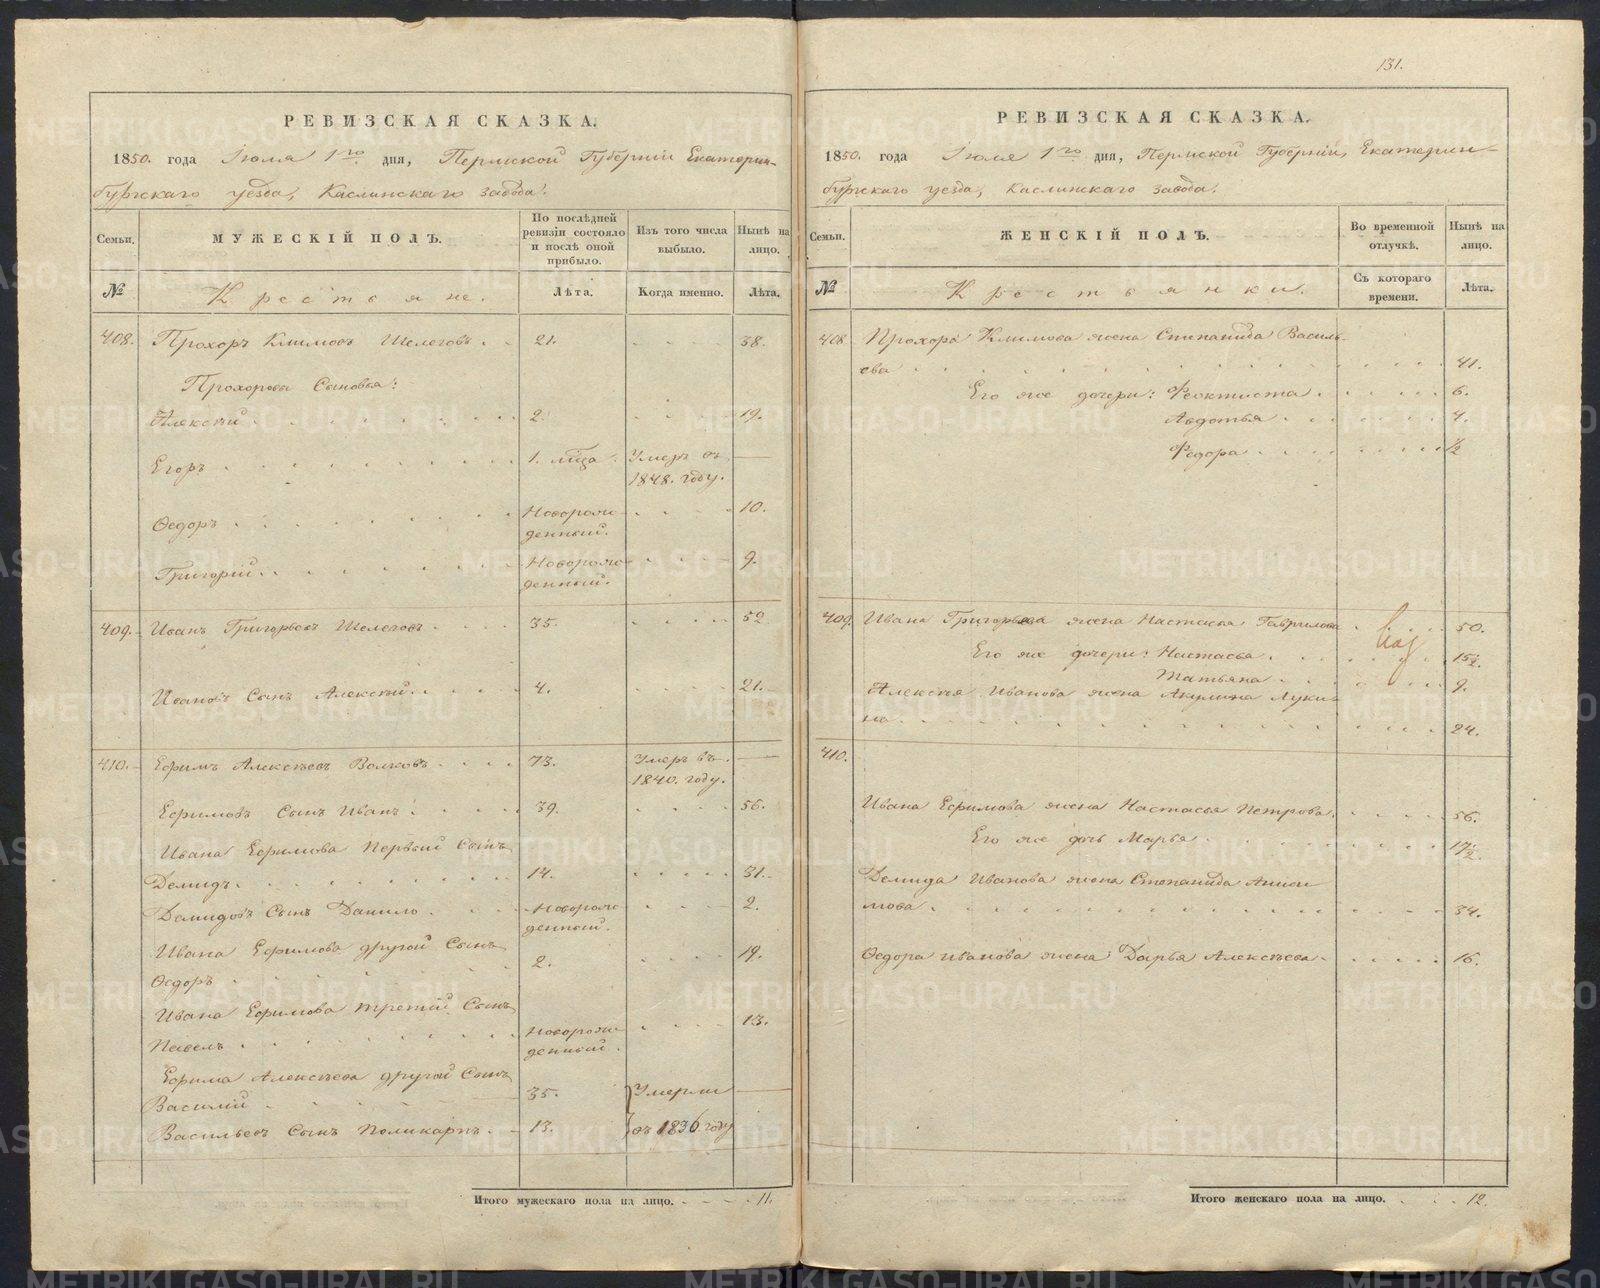 131.
РЕВИЗСКАЯ СКАЗКА.
1850. года Іюля 1го дня, Пермской Губерніи Екатерин-
бургскаго уезда, Каслинскаго завода.
Семьи. МУЖЕСКІЙ ПОЛЪ. По послѣдней ревизіи состояло и послѣ оной прибыло. Изъ того числа выбыло. Нынѣ на лицо.
№ Крестьяне. Лѣта. Когда именно. Лѣта.
408. Прохоръ Климовъ Шелеговъ 21. 38.
Прохоровы Сыновья:
Алексѣй 2. 19.
Егоръ 1. мѣсца. Умеръ въ 1848. году.
Ѳедоръ Новорожденный. 10.
Григорій Новорожденный. 9.
409. Иванъ Григорьевъ Шелеговъ 35. 52
Ивановъ Сынъ Алексѣй 4. 21.
410. Ефимъ Алексѣевъ Волковъ 73. Умеръ въ 1840. году.
Ефимовъ Сынъ Иванъ 39. 56.
Ивана Ефимова первый Сынъ
Демидъ. 14. 31.
Демидовъ Сынъ Данило Новорожденный. 2.
Ивана Ефимова другой Сынъ
Ѳедоръ 2. 19.
Ивана Ефимова третій Сынъ
Павелъ Новорожденный. 13.
Ефима Алексѣева другой Сынъ
Василій 35. Умерли
Васильевъ Сынъ Поликарпъ. 13. въ 1836 году
Итого мужескаго пола на лицо. 11.
РЕВИЗСКАЯ СКАЗКА.
1850. года Іюля 1го дня, Пермской Губерніи, Екатерин-
бургскаго уезда, Каслинскаго завода.
Семьи. ЖЕНСКІЙ ПОЛЪ. Во временной отлучкѣ. Нынѣ на лицо.
№ Крестьянки. Съ котораго времени. Лѣта.
408. Прохора Климова жена Степанида Василь-
ева 41.
Его же дочери: Феоктиста 6.
Авдотья 4.
Федора ½
409. Ивана Григорьева жена Настасья Гаврилова 50.
Его же дочери: Настасья 15½.
Татьяна 9.
Алексѣя Иванова жена Акулина Луки-
на 24.
410.
Ивана Ефимова жена Настасья Петрова 56.
Его же дочь Марья 17½.
Демида Иванова жена Степанида Аниси
мова 34.
Ѳедора Иванова жена Дарья Алексѣева 16.
Итого женскаго пола на лицо. 12.
METRIKI.GASO-URAL.RU